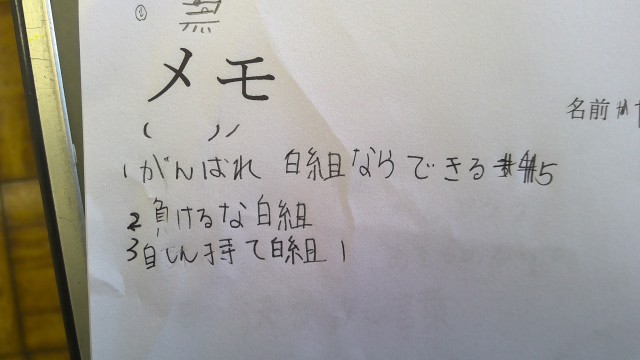 メモ
名前
1がんばれ 白組ならできる 5
2負けるな白組
3自しん持て白組 1